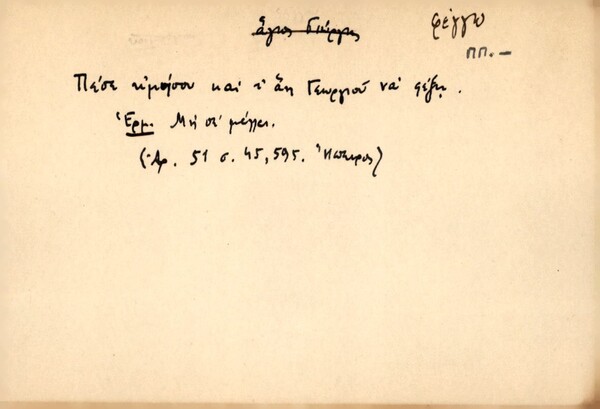 ἅγιος Γιώργης
φέγγω
ΠΠ. –
Πέσε κοιμήσου καὶ τ' ἅη Γεωργιοῦ νὰ φέξῃ.
Ἑρμ. Μή σέ μέλει.
(Ἀρ. 51 σ. 45, 595. Ἤπειρος)